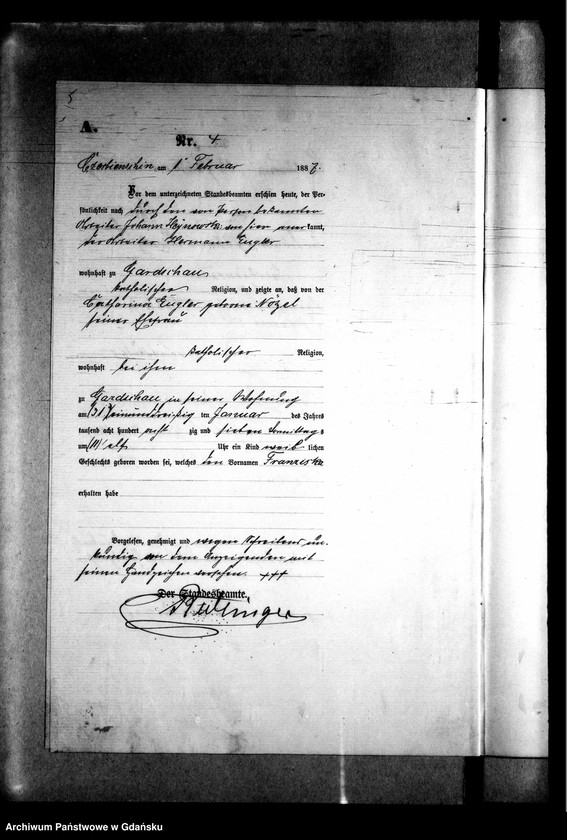 A.
Nr. 4
Czerbienschin am 1. Februar 1887.
Vor dem unterzeichneten Standesbeamten erschien heute, der Per-
sönlichkeit nach durch den von Person bekannten
Arbeiter Johann von hier anerkannt,
der Arbeiter Hermann Engler
wohnhaft zu Gardschau
katholischer Religion, und zeigte an, daß von der
Catharina Engler geborne Nözel
seiner Ehefrau
katholischer Religion,
wohnhaft bei ihm
zu Gardschau in seiner Wohnung
am (31) einunddreißig ten Januar des Jahres
tausend acht hundert acht zig und sieben Vormittags
um (11) elf Uhr ein Kind weib lichen
Geschlechts geboren worden sei, welches den Vornamen Franziska
erhalten habe
Vorgelesen, genehmigt und wegen Schreibens un-
kundig von dem Anzeigenden mit
seinen Handzeichen versehen. +++
Der Standesbeamte.
Archiwum Państwowe w Gdańsku